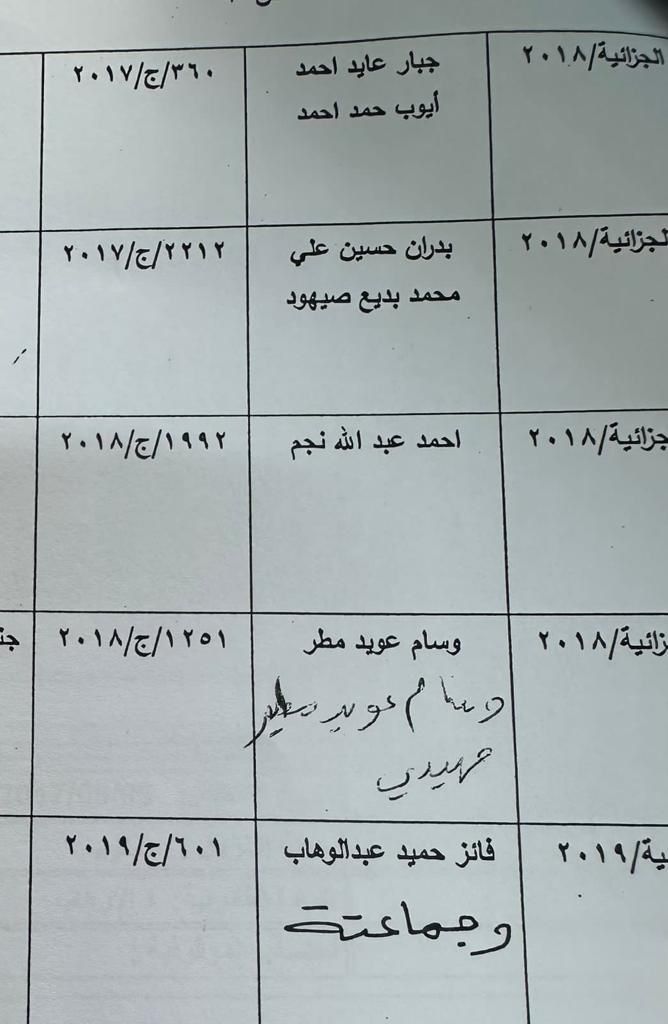 الجزائية/٢٠١٨ جبار عايد احمد ٣٦٠/ج/٢٠١٧
أيوب حمد احمد
لجزائية/٢٠١٨ بدران حسين علي ٢٢١٢/ج/٢٠١٧
محمد بديع صيهود
جزائية/٢٠١٨ احمد عبد الله نجم ١٩٩٢/ج/٢٠١٨
زائية/٢٠١٨ وسام عويد مطر ١٢٥١/ج/٢٠١٨ جن
وسام عويد
ية/٢٠١٩ فائز حميد عبدالوهاب ٦٠١/ج/٢٠١٩
وجماعتة